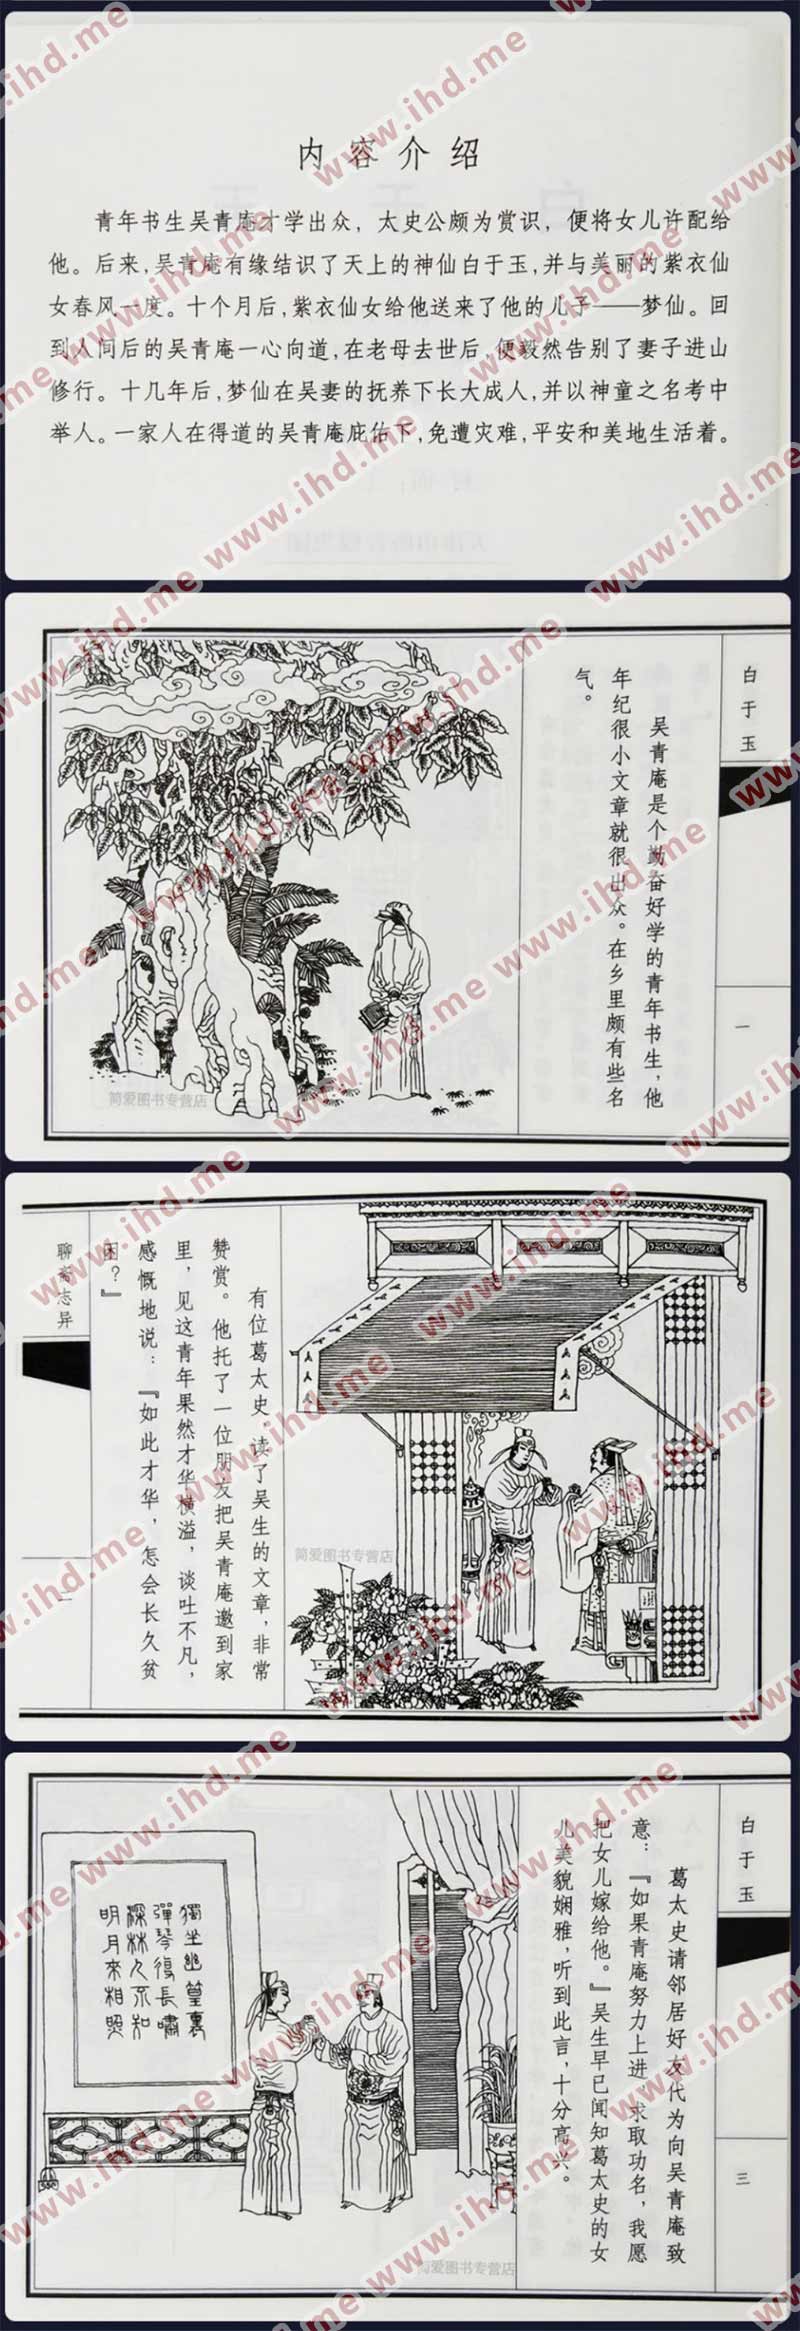 内容介绍
青年书生吴青庵才学出众，太史公颇为赏识，便将女儿许配给
他。后来，吴青庵有缘结识了天上的神仙白于玉，并与美丽的紫衣仙
女春风一度。十个月后，紫衣仙女给他送来了他的儿子——梦仙。回
到人间后的吴青庵一心向道，在老母去世后，便毅然告别了妻子进山
修行。十几年后，梦仙在吴妻的抚养下长大成人，并以神童之名考中
举人。一家人在得道的吴青庵庇佑下，免遭灾难，平安和美地生活着。
白于玉
一
吴青庵是个勤奋好学的青年书生，他
年纪很小文章就很出众。在乡里颇有些名
气。
简爱图书专营店
有位葛太史，读了吴生的文章，非常
赞赏。他托了一位朋友把吴青庵邀到家
里，见这青年果然才华横溢，谈吐不凡，
感慨地说：『如此才华，怎会长久贫
困？』
聊斋志异
二
简爱图书专营店
白于玉
三
葛太史请邻居好友代为向吴青庵致
意：『如果青庵努力上进，求取功名，我愿
把女儿嫁给他。』吴生早已闻知葛太史的女
儿美貌娴雅，听到此言，十分高兴。
獨坐幽篁裏
彈琴復長嘯
深林人不知
明月來相照
简爱图书专营店
www.ihd.me